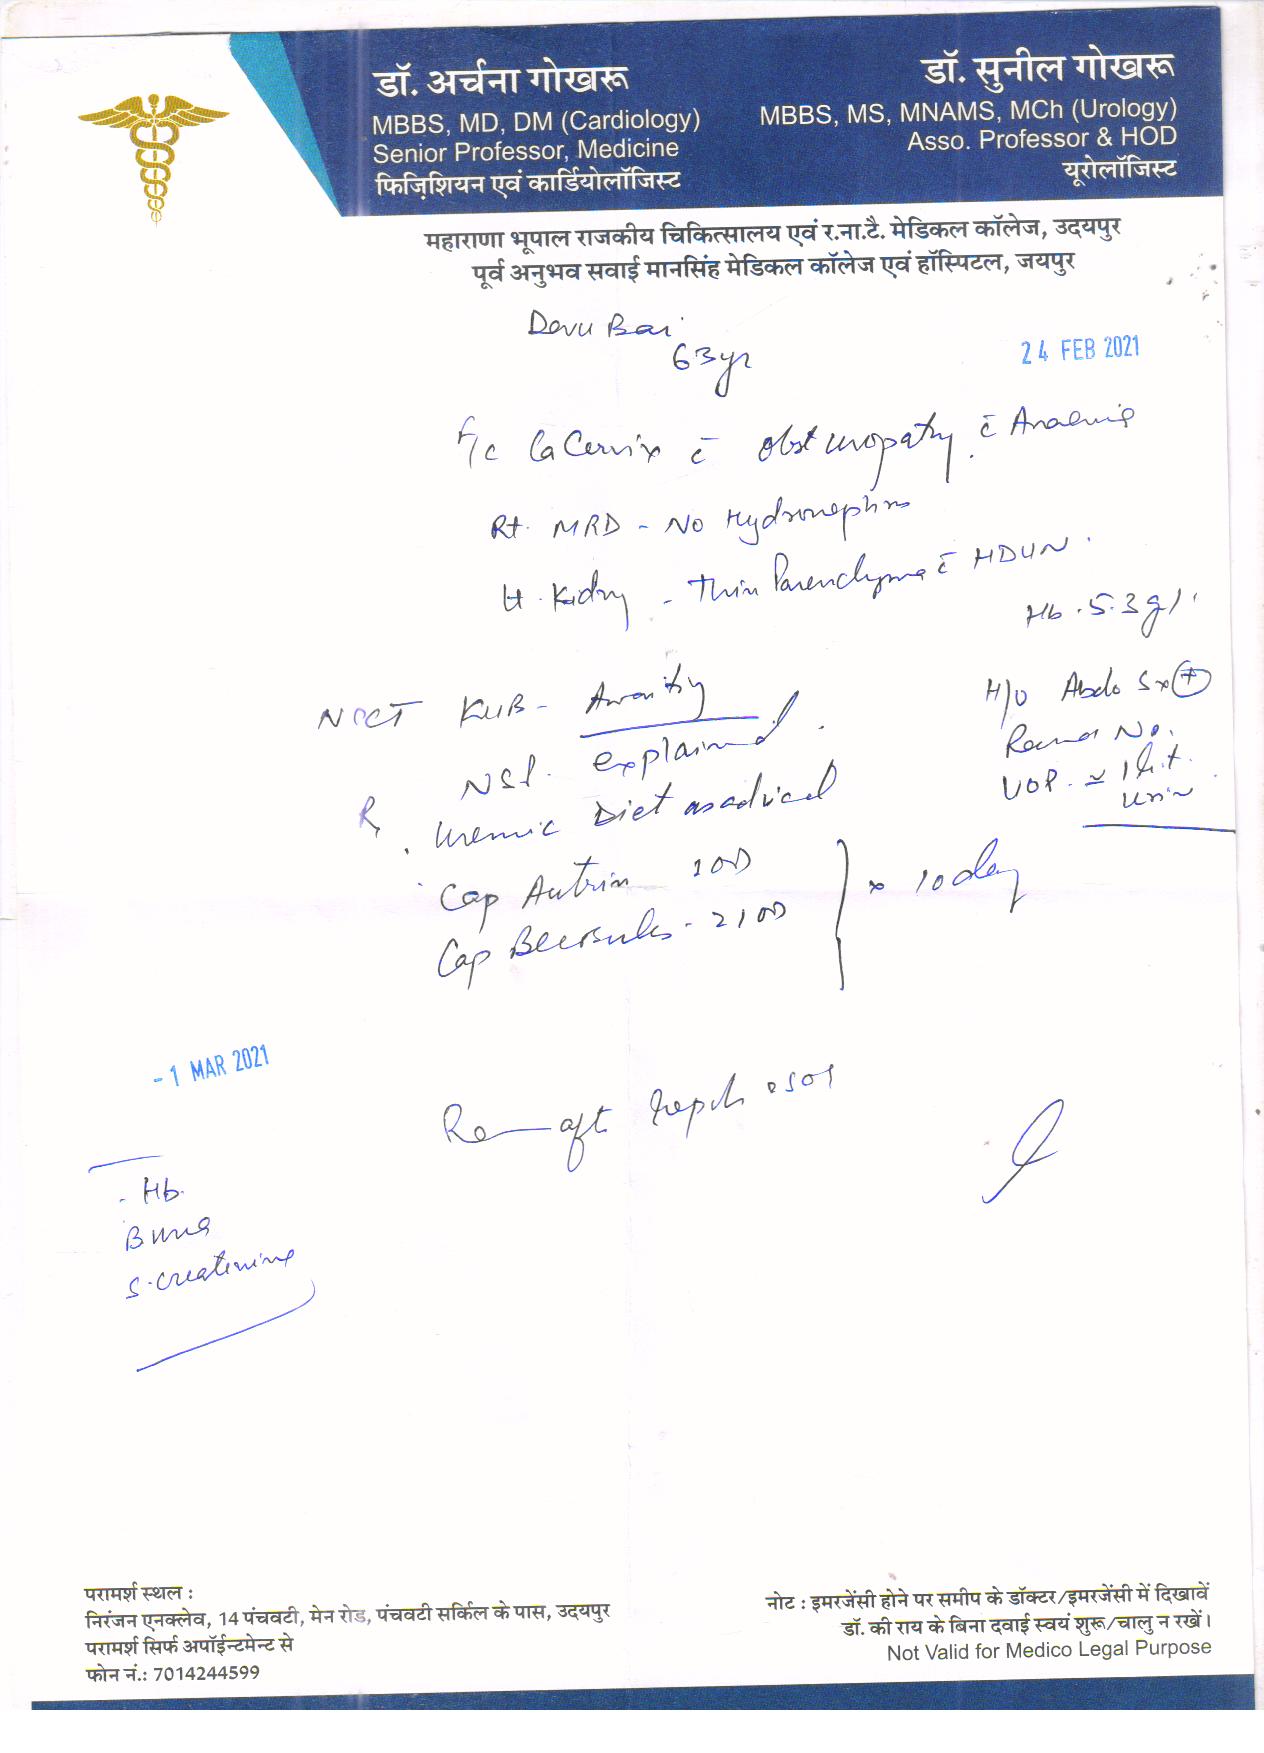 डॉ. अर्चना गोखरू
MBBS, MD, DM (Cardiology)
Senior Professor, Medicine
फिज़िशियन एवं कार्डियोलॉजिस्ट
डॉ. सुनील गोखरू
MBBS, MS, MNAMS, MCh (Urology)
Asso. Professor & HOD
यूरोलॉजिस्ट
महाराणा भूपाल राजकीय चिकित्सालय एवं र.ना.टै. मेडिकल कॉलेज, उदयपुर
पूर्व अनुभव सवाई मानसिंह मेडिकल कॉलेज एवं हॉस्पिटल, जयपुर
Devu Bai
63yr
24 FEB 2021
Ca Cervix c̄ Obst uropathy c̄ Anaemia
Rt. MRD - No Hydroneph
Lt. Kidny - Thin Parenchyma c̄ HDUN.
Hb. 5.3 g/.
NCCT KUB - Awaitig
explained.
H/o Abdo Sx +
No.
UOP. ≃ 1 lit.
Urin
R
Uremic Diet as advised
Cap Autrin 1OD
Cap Becosules - 1OD
x 10 day
- 1 MAR 2021
Re aft
- Hb.
B urea
S. Creatinine
परामर्श स्थल :
निरंजन एनक्लेव, 14 पंचवटी, मेन रोड, पंचवटी सर्किल के पास, उदयपुर
परामर्श सिर्फ अपॉईन्टमेन्ट से
फोन नं.: 7014244599
नोट : इमरजेंसी होने पर समीप के डॉक्टर/इमरजेंसी में दिखावें
डॉ. की राय के बिना दवाई स्वयं शुरू/चालु न रखें।
Not Valid for Medico Legal Purpose